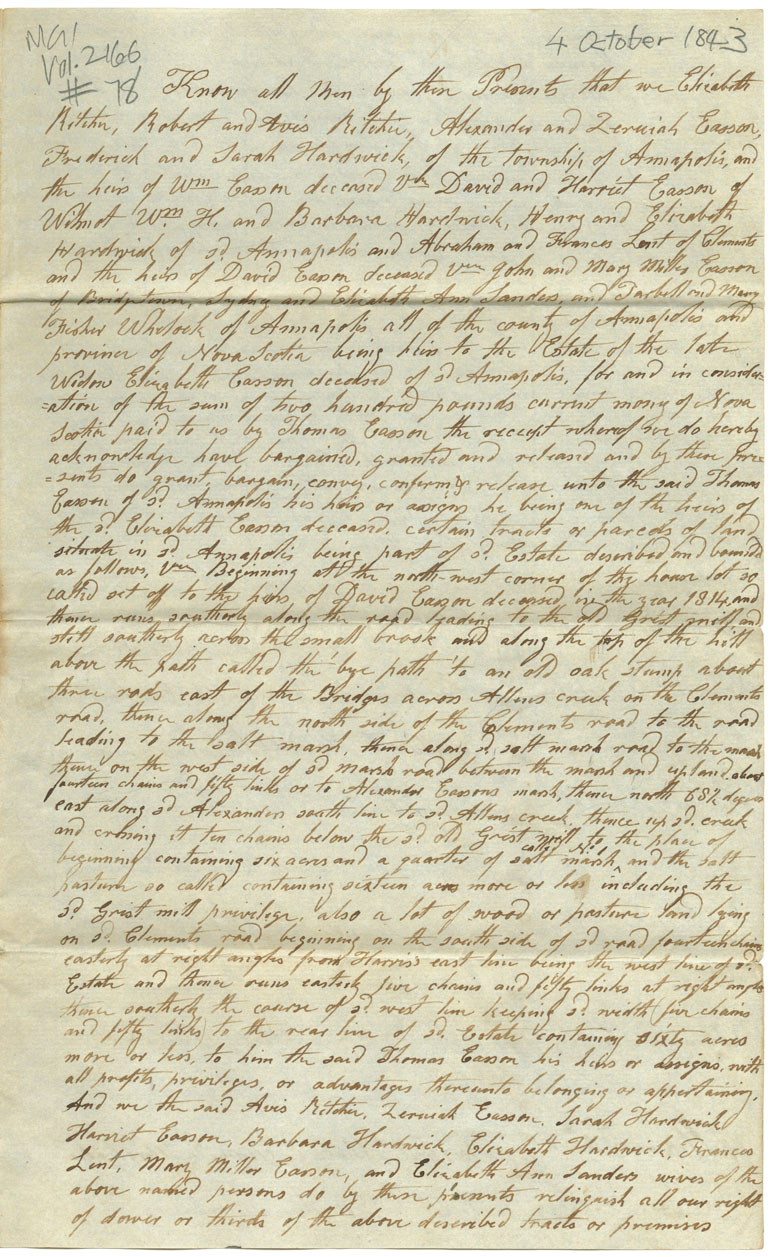 MG1
Vol. 2166
# 78
4 October 1843
Know all Men by these Presents that we Elizabeth
Ritchie, Robert and Avis Ritchie, Alexander and Zeruiah Easson,
Frederick and Sarah Hardwick, of the township of Annapolis, and
the heirs of Wm Easson deceased Viz David and Harriet Easson of
Wilmot Wm. H. and Barbara Hardwick, Henry and Elizabeth
Hardwick of sd. Annapolis and Abraham and Frances Lent of Clements
and the heirs of David Easson deceased Viz John and Mary Miller Easson
of Bridgetown, Sydney and Elizabeth Ann Sanders, and Tarbell and Mary
Fisher Whelock of Annapolis all of the county of Annapolis and
province of Nova Scotia being heirs to the Estate of the late
Widow Elizabeth Easson deceased of sd. Annapolis, for and in consider=
=ation of the sum of two hundred pounds current money of Nova
Scotia paid to us by Thomas Easson the receipt whereof we do hereby
acknowledge have bargained, granted and released and by these pre=
=sents do grant, bargain, convey, confirm & release unto the said Thomas
Easson of sd. Annapolis his heirs or assigns he being one of the heirs of
the sd. Elizabeth Easson deceased. certain tracts or parcels of land
situate in sd. Annapolis being part of sd. Estate described and bounded
as follows, Viz Beginning att the north-west corner of the house lot so
called set off to the heirs of David Easson deceased in the year 1814, and
thence runs southerly along the road leading to the old Grist mill and
still southerly across the small brook and along the top of the hill
above the path called the bye path to an old oak stump about
three rods east of the Bridges across Allens creek on the Clements
road, thence along the north side of the Clements road to the road
leading to the salt marsh, thence along sd. salt marsh road to the marsh
thence on the west side of sd marsh road between the marsh and upland about
fourteen chains and fifty links or to Alexander Eassons marsh, thence north 68½ degrees
east along sd Alexanders south line to sd. Allens creek, thence up sd. creek
and crossing it ten chains below the sd. old Grist mill to the place of
beginning containing six acres and a quarter of salt marsh called No. 1 and the salt
pasture so called containing sixteen acres more or less including the
sd. Grist mill privilege, also a lot of wood or pasture land lying
on sd. Clements road beginning on the south side of sd road fourteen chains
easterly at right angles from Harris's east line being the west line of sd.
Estate and thence runs easterly five chains and fifty links at right angles
thence southerly the course of sd. west line keeping sd. width (five chains
and fifty links) to the rear line of sd. Estate containing sixty acres
more or less, to him the said Thomas Easson his heirs or assigns, with
all profits, privileges, or advantages thereunto belonging or appertaining.
And we the said Avis Ritchie, Zeruiah Easson, Sarah Hardwick
Harriet Easson, Barbara Hardwick, Elizabeth Hardwick, Frances
Lent, Mary Miller Easson, and Elizabeth Ann Sanders wives of the
above named persons do by these presents relinquish all our right
of dower or thirds of the above described tracts or premises